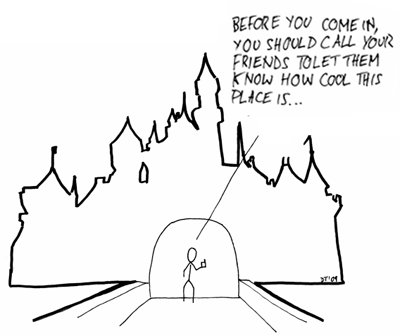 BEFORE YOU COME IN,
YOU SHOULD CALL YOUR
FRIENDS TO LET THEM
KNOW HOW COOL THIS
PLACE IS...
DT'09